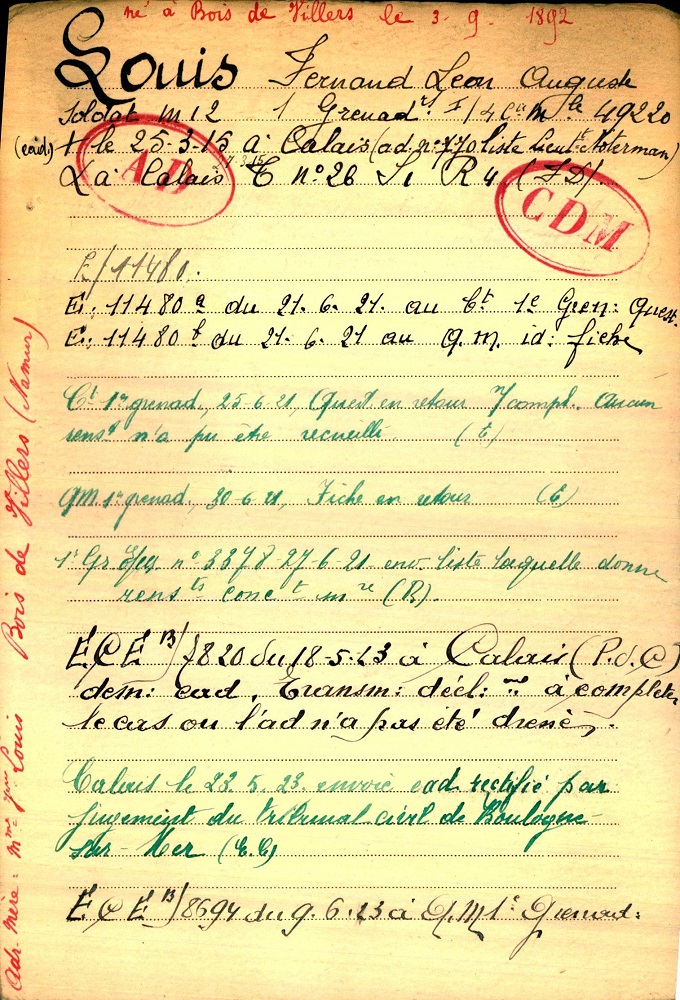 né à Bois de Villers le 3. 9. 1892
Louis Fernand Leon Auguste
Soldat m 12 1 Grenad. I/4 Cie m le 49220
(ead) † le 25-3-15 à Calais (ad. n° 170 liste Lieut Noterman)
AD
La Calais T n° 26 R 4 (FD).
CDM
E/11480.
E: 11480 a du 21. 6. 21. au Ct 1e Gren: Quest.
E: 11480 b du 21. 6. 21 au Q.M. id: fiche
Ct 1r grenad, 25-6-21, Quest en retour compl. Aucun
renst n'a pu être recueilli. (E)
QM 1r grenad, 30-6-21, Fiche en retour (E)
1r Gr n° 3378-27-6-21 env. liste laquelle donne
rensts conct m re (R).
E C E B)/820 du 18-5-23 à Calais (P.d.C)
dem: ead. Transm: décl: à completer
le cas ou l'ad n'a pas été dressé.
Calais le 23. 5. 23. envoie ead rectifié par
jugement du Tribunal civil de Boulogne-
sur-Mer (E.C)
E C E B)/8694 du 9. 6. 23 à Q.M 1e Grenad:
Adr. Mère: Mme Louis Bois de Villers (Namur)